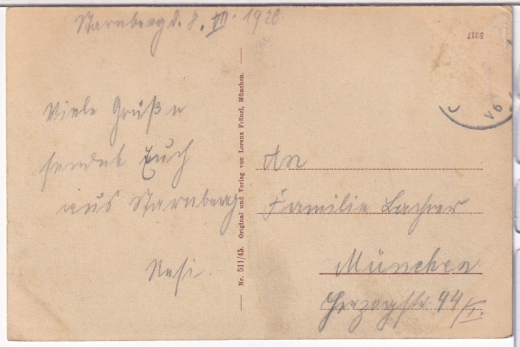 Starnberg d. 8. VII. 1920.
Viele Grüße
sendet Euch
aus Starnberg
Resi.
Nr. 511/45. Original und Verlag von Lorenz Fränzl, München.
An
Familie
München
Herzogstr. 44/I.